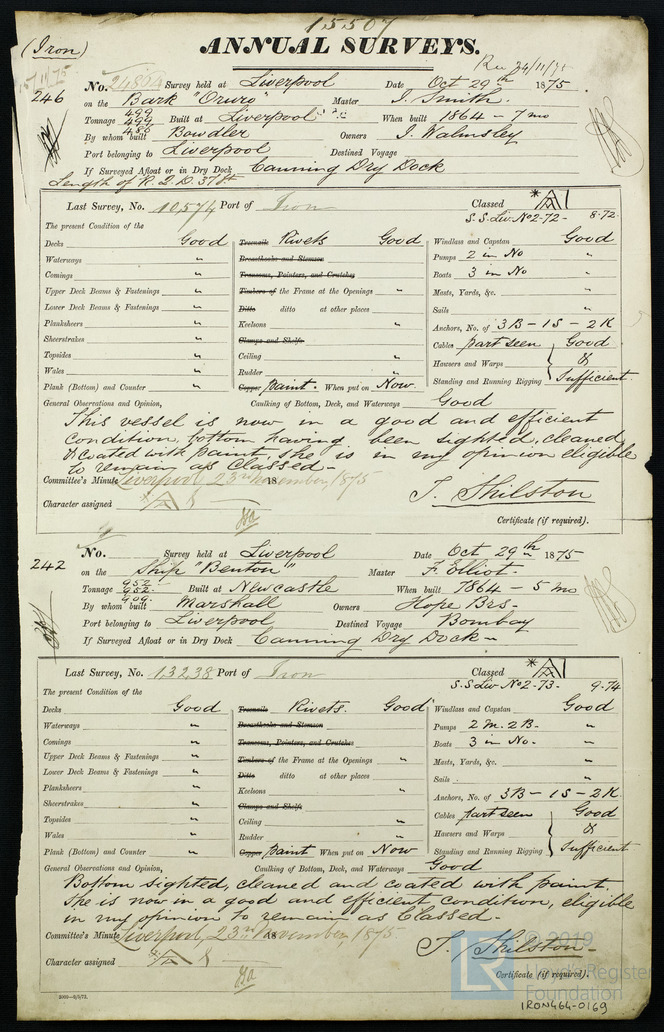 15507
(Iron)
ANNUAL SURVEYS.
Rec 24/11/75
246
No. 24864 Survey held at Liverpool Date Oct 29th 1875.
on the Bark "Oruro" Master J. Smith.
Tonnage 499 Built at Liverpool When built 1864 - 7 mo
By whom built Bowdler Owners J. Walmsley
Port belonging to Liverpool Destined Voyage
If Surveyed Afloat or in Dry Dock Canning Dry Dock
Length of
Last Survey, No. 10574 Port of Iron Classed
S.S. Liv. No 2-72- 8.72.
The present Condition of the
Decks Good Treenails Rivets Good Windlass and Capstan Good
Waterways " Breasthooks and Stemson Pumps 2 in No "
Comings " Transoms, Pointers, and Crutches Boats 3 in No "
Upper Deck Beams & Fastenings " Timbers of the Frame at the Openings " Masts, Yards, &c. "
Lower Deck Beams & Fastenings " Ditto ditto at other places Sails "
Planksheers " Keelsons " Anchors, No. of 3B - 1S - 2K
Sheerstrakes " Clamps and Shelfs Cables part seen Good
Topsides " Ceiling " Hawsers and Warps &
Wales " Rudder " Standing and Running Rigging Sufficient
Plank (Bottom) and Counter " Copper paint. When put on Now.
General Observations and Opinion, Caulking of Bottom, Deck, and Waterways Good
This vessel is now in a good and efficient
condition, bottom having been sighted, cleaned
& coated with paint, she is in my opinion eligible
to remain as Classed -
Committee's Minute Liverpool, 23rd November, 1875 18
Character assigned
T. Shilston
Certificate (if required).
242
No. Survey held at Liverpool Date Oct 29th 1875
on the Ship "Benton" Master F. Elliot.
Tonnage 952 952. 909. Built at Newcastle When built 1864 - 5 mo
By whom built Marshall Owners Hope Brs -
Port belonging to Liverpool Destined Voyage Bombay
If Surveyed Afloat or in Dry Dock Canning Dry Dock -
Last Survey, No. 13238 Port of Iron Classed
S.S. Liv No 2-73. 9.74
The present Condition of the
Decks Good Treenails Rivets. Good Windlass and Capstan Good
Waterways " Breasthooks and Stemson Pumps 2 M. 2 B. "
Comings " Transoms, Pointers, and Crutches Boats 3 in No. "
Upper Deck Beams & Fastenings " Timbers of the Frame at the Openings " Masts, Yards, &c. "
Lower Deck Beams & Fastenings " Ditto ditto at other places Sails "
Planksheers " Keelsons " Anchors, No. of 3B - 1S - 2K
Sheerstrakes " Clamps and Shelfs Cables part seen Good
Topsides " Ceiling " Hawsers and Warps &
Wales " Rudder " Standing and Running Rigging Sufficient
Plank (Bottom) and Counter " Copper paint When put on Now
General Observations and Opinion, Caulking of Bottom, Deck, and Waterways Good
Bottom sighted, cleaned and coated with paint.
She is now in a good and efficient condition, eligible
in my opinion to remain as Classed -
Committee's Minute Liverpool, 23rd November, 1875 18
Character assigned
T. Shilston -
Certificate (if required).
© 2019
LR Lloyd's Register
Foundation
2000-9/5/72.
IRON464-0169